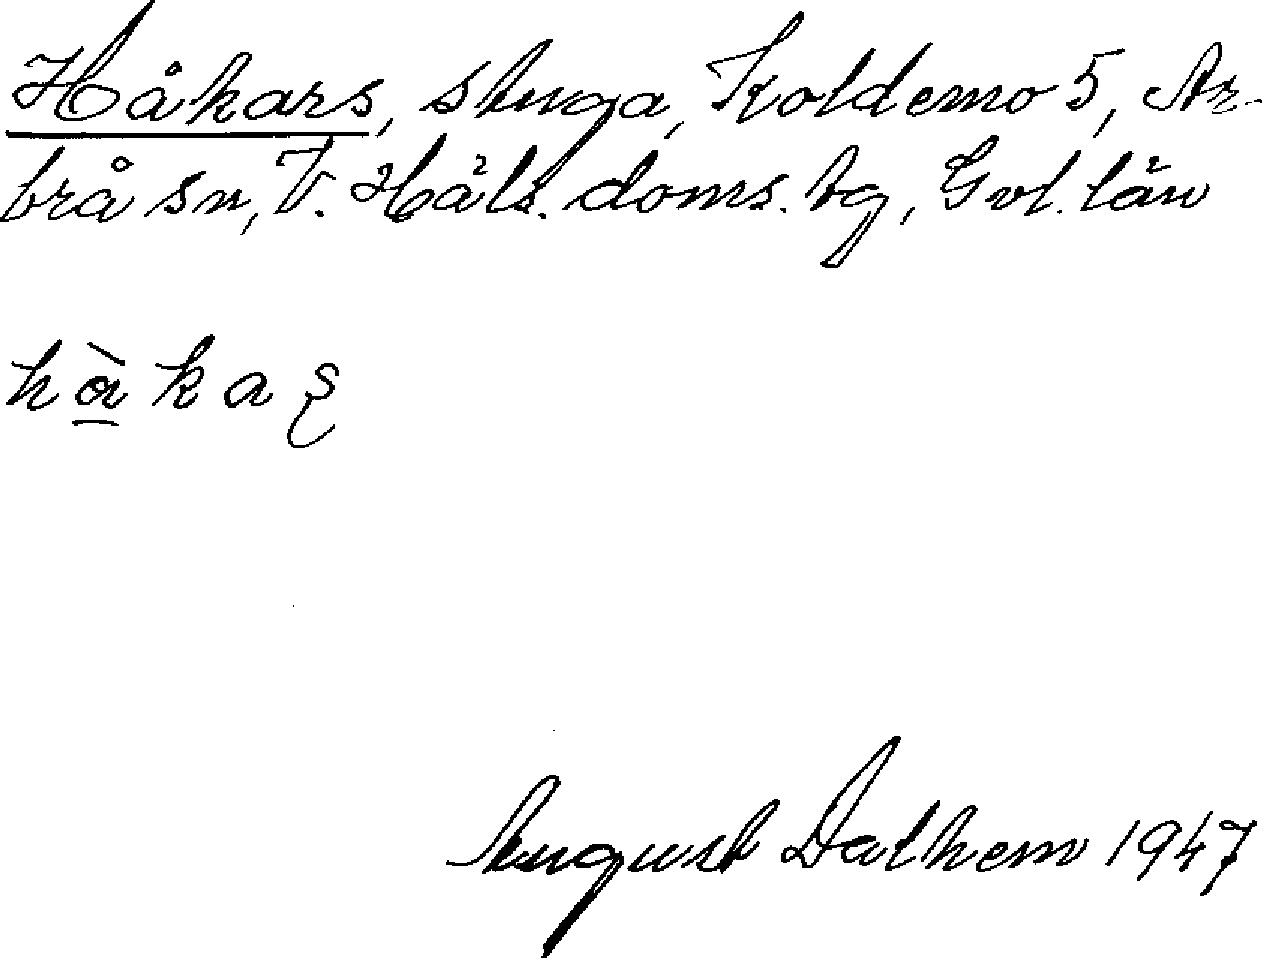 Håkars, stuga, Koldemo 5, Ar-
brå sn, V. Häls. doms. tg, Gvl. län
hà̱kaʂ
August Dalhem 1947